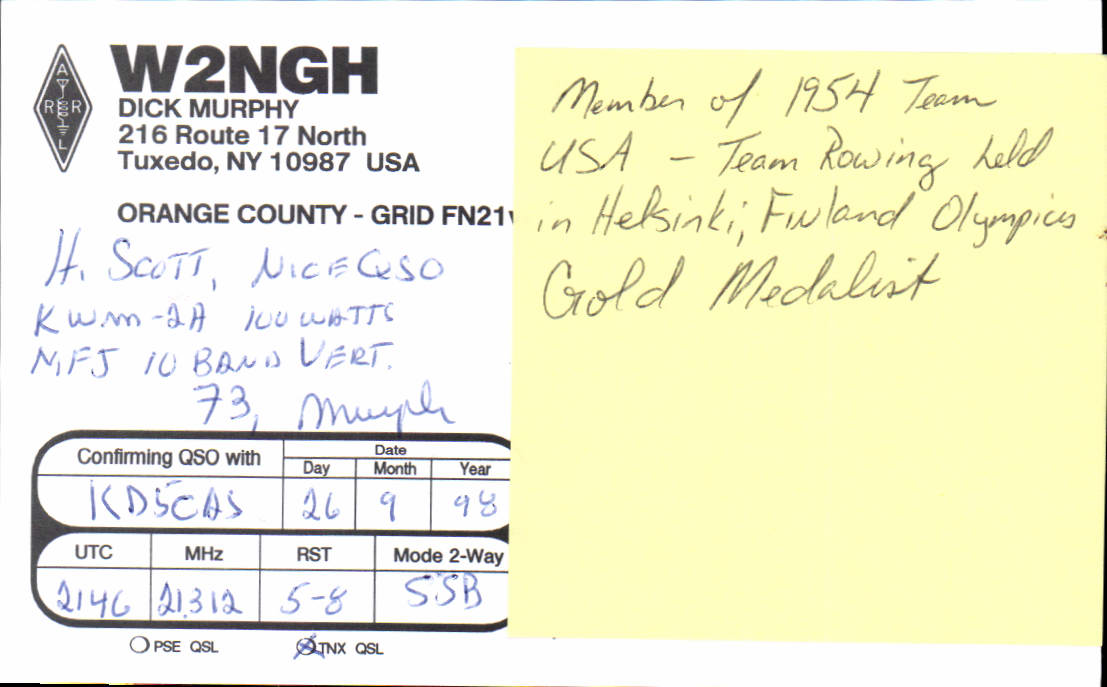 A
R R
L
W2NGH
DICK MURPHY
216 Route 17 North
Tuxedo, NY 10987 USA
ORANGE COUNTY - GRID FN21
H. SCOTT, NICE QSO
KWM-2A 100 WATTS
MFJ 10 BAND VERT.
73, Murph
Confirming QSO with
Date
Day Month Year
KD5CAS 26 9 98
UTC MHz RST Mode 2-Way
2146 21.312 5-8 SSB
PSE QSL TNX QSL
Member of 1954 Team
USA - Team Rowing held
in Helsinki, Finland Olympics
Gold Medalist